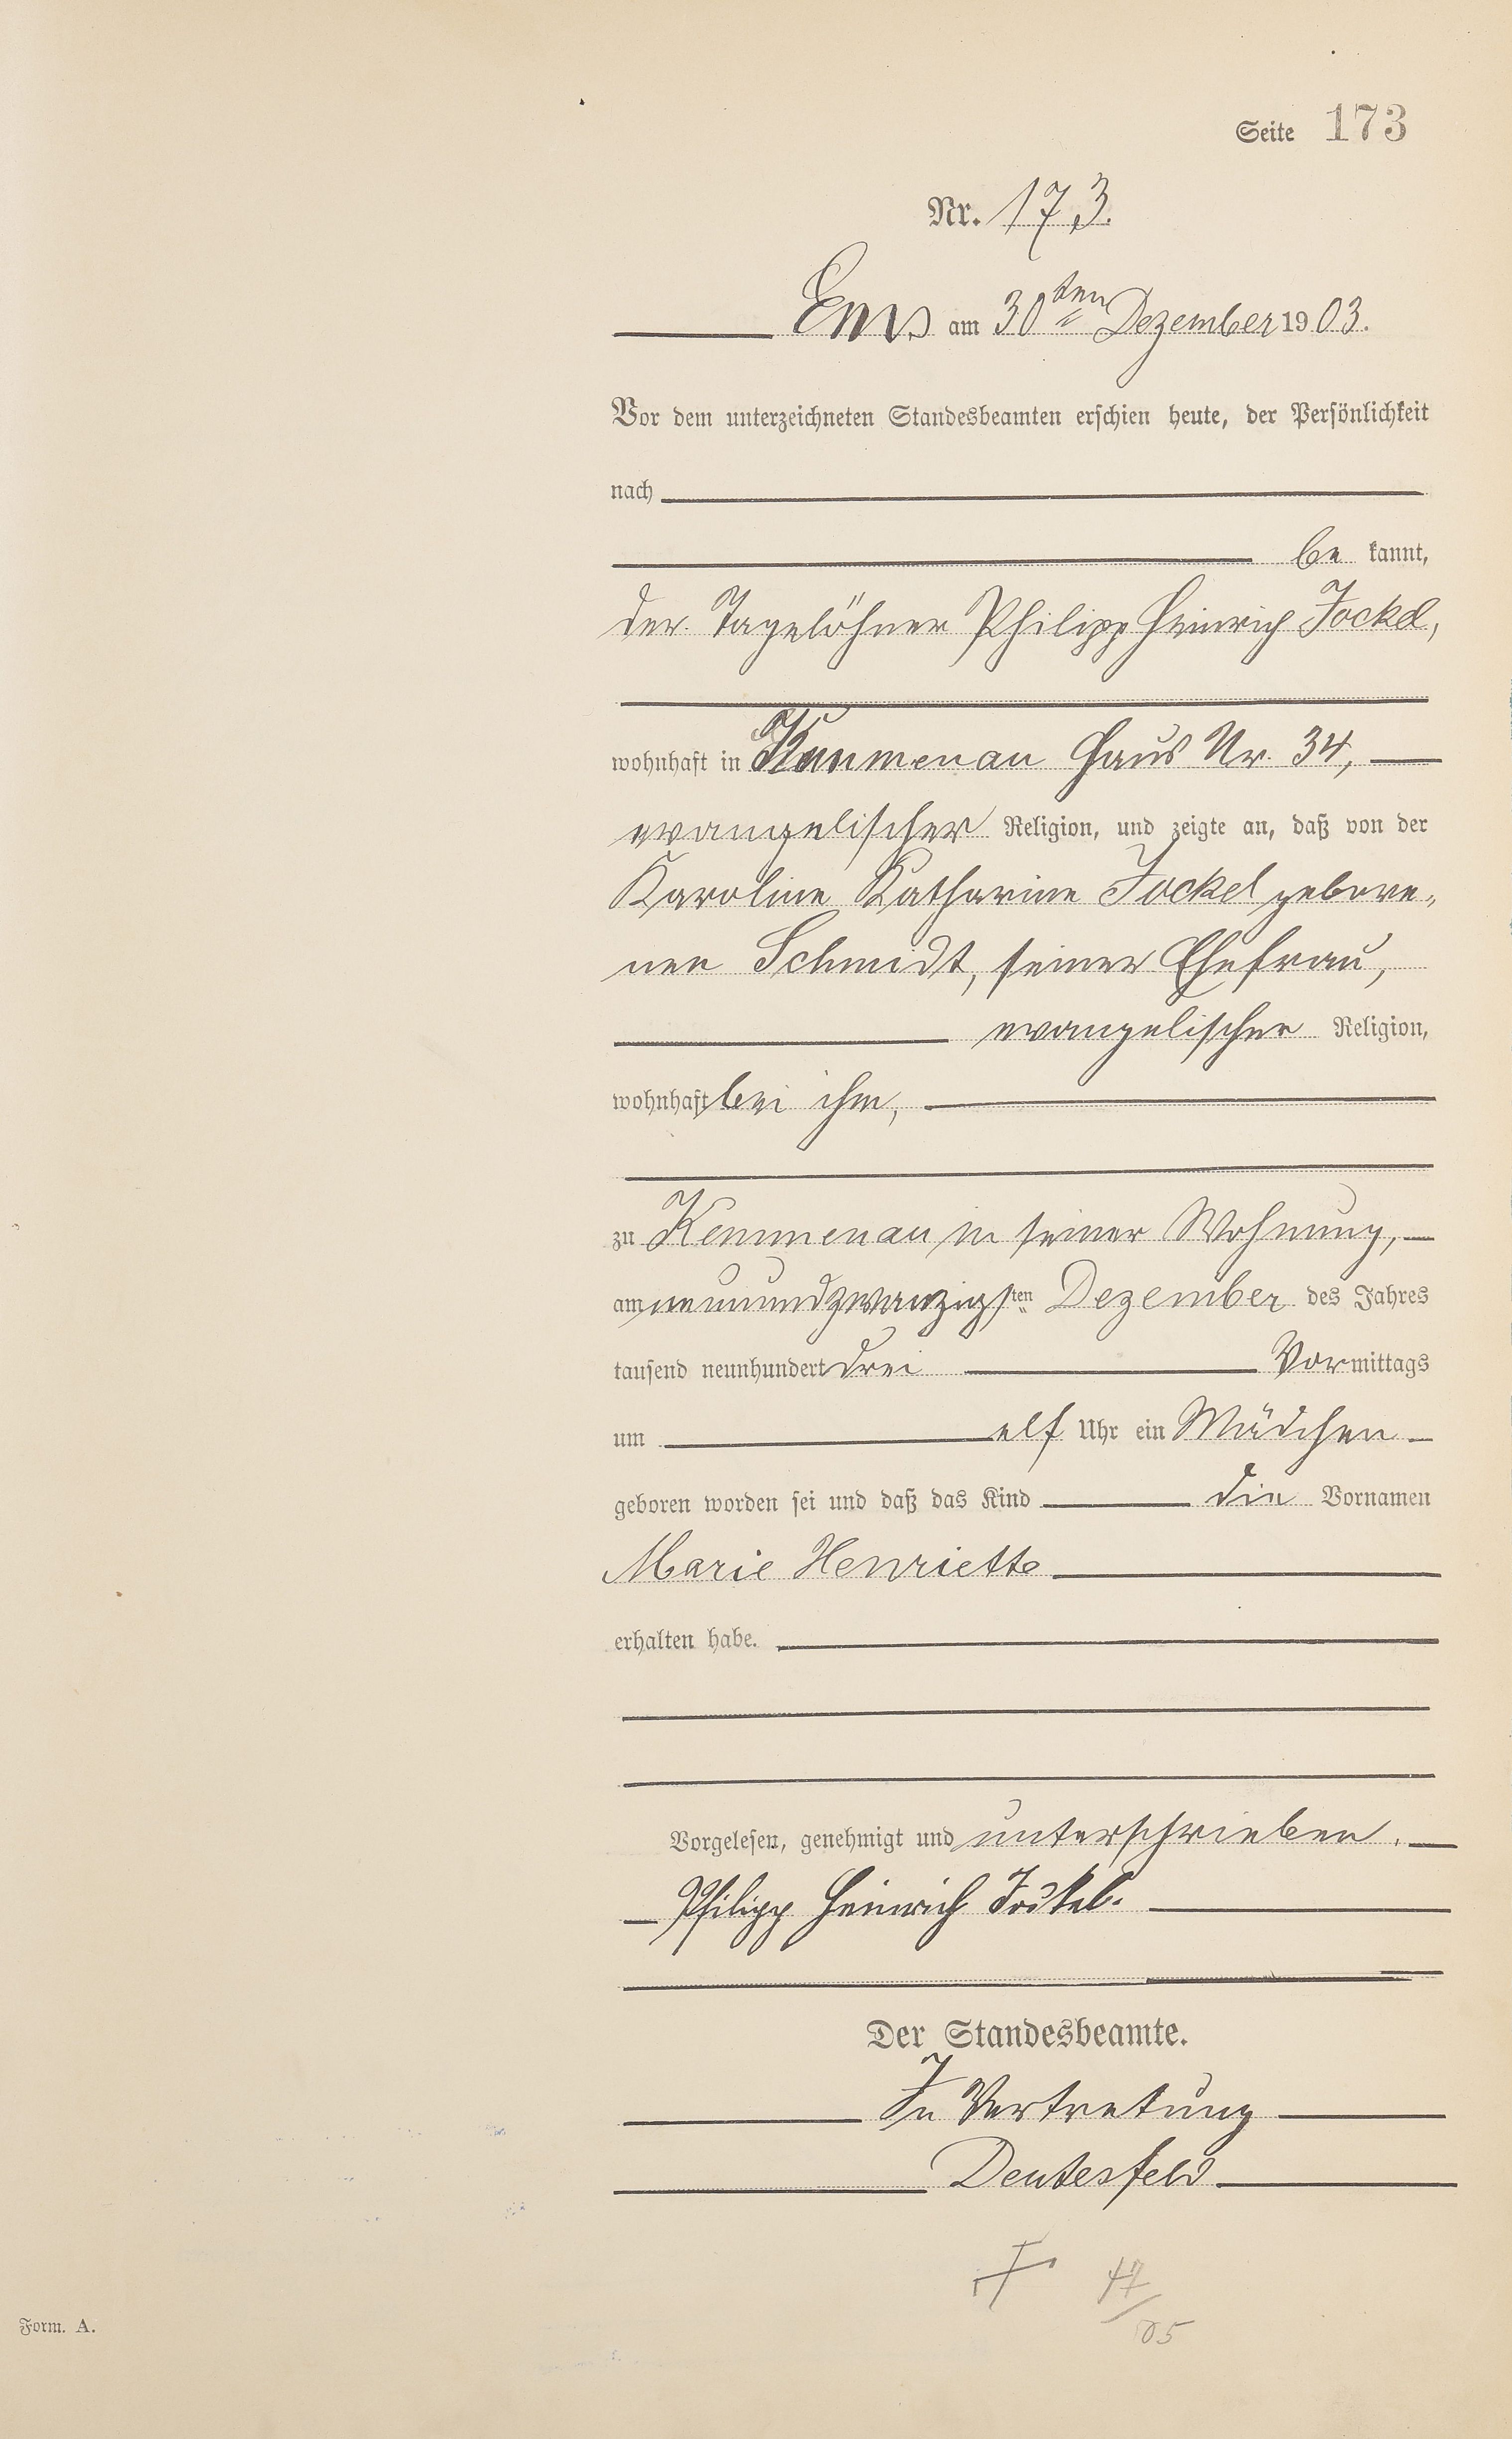 Seite 173
Nr. 173.
Ems am 30ten Dezember 1903.
Vor dem unterzeichneten Standesbeamten erschien heute, der Persönlichkeit
nach
be kannt,
der Tagelöhner Philipp Heinrich Jockel,
wohnhaft in Kemmenau Haus Nr. 34,
evangelischer Religion, und zeigte an, daß von der
Karoline Katharine Jockel gebore-
nen Schmidt, seiner Ehefrau,
evangelischer Religion,
wohnhaft bei ihm,
zu Kemmenau in seiner Wohnung,
am neunundzwanzigsten Dezember des Jahres
tausend neunhundert drei Vormittags
um elf Uhr ein Mädchen
geboren worden sei und daß das Kind die Vornamen
Marie Henriette
erhalten habe.
Vorgelesen, genehmigt und unterschrieben.
Philipp Heinrich Jockel.
Der Standesbeamte.
In Vertretung
Deutesfeld
47/05
Form. A.